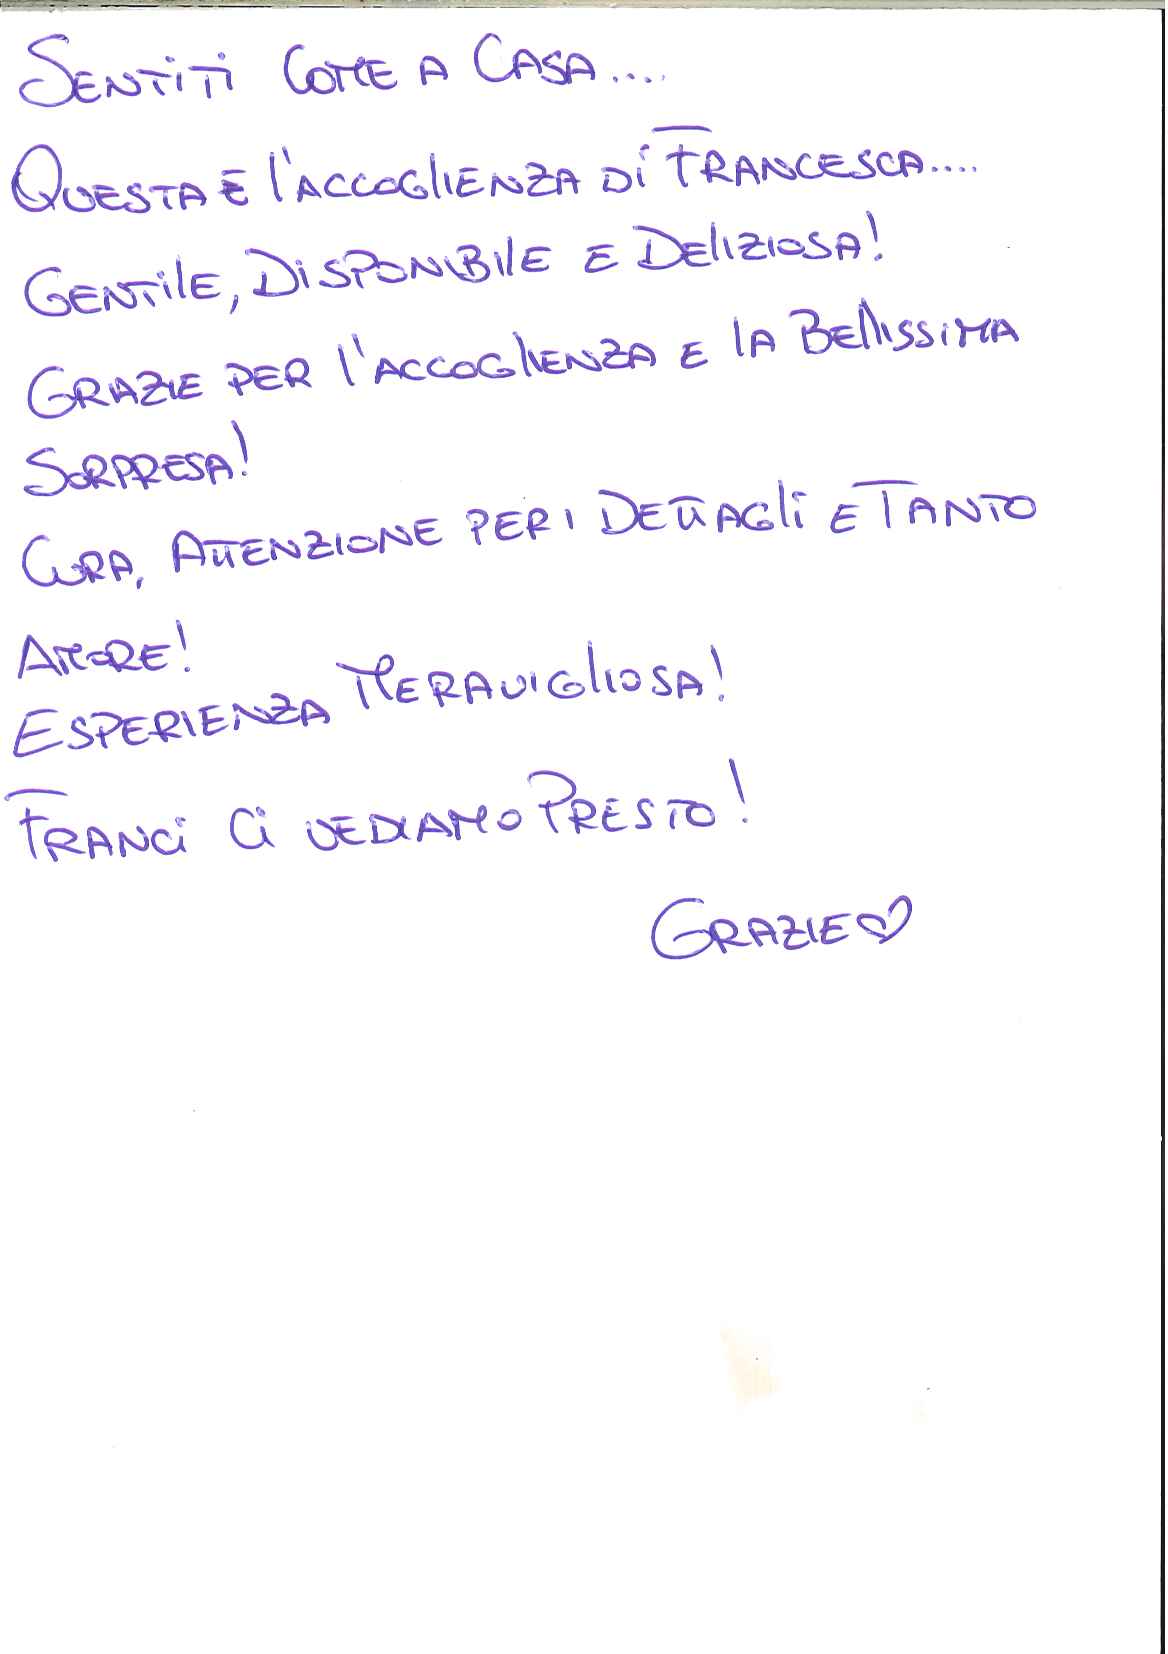 Sentiti Come a Casa....
Questa è l'accoglienza di Francesca....
Gentile, Disponibile e Deliziosa!
Grazie per l'accoglienza e la Bellissima
Sorpresa!
Cura, Attenzione per i Dettagli e Tanto
Amore!
Esperienza Meravigliosa!
Franci ci vediamo Presto!
Grazie♡